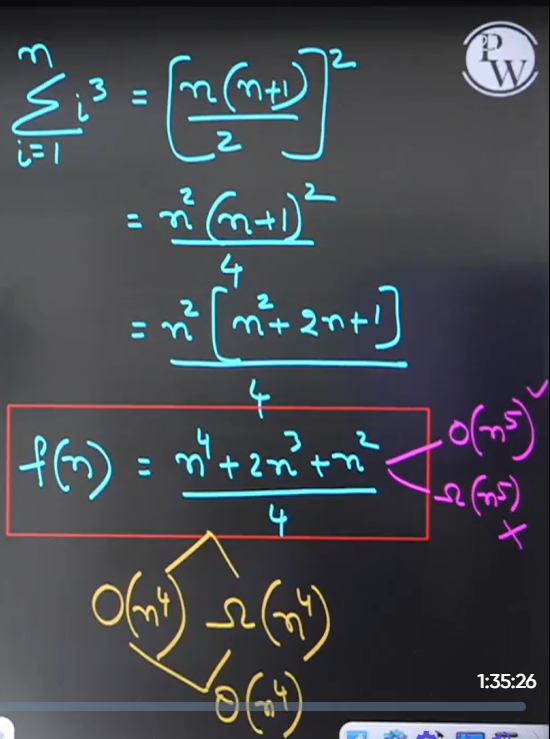 PW
n
∑ i³ = [n(n+1)/2]²
i=1
= n²(n+1)²/4
= n²[n²+2n+1]/4
f(n) = (n⁴+2n³+n²)/4
O(n⁵) ✓
Ω(n⁵) ×
O(n⁴) Ω(n⁴)
θ(n⁴)
1:35:26